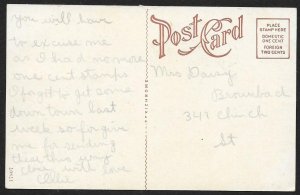 you will have
to excuse me
as I had no more
one cent stamps
I forgot to get some
down town last
week so forgive
me for sending
these this way
love with love
Post Card
PLACE
STAMP HERE
DOMESTIC
ONE CENT
FOREIGN
TWO CENTS
Mrs Daisy
Brombach
341 Clinch
St